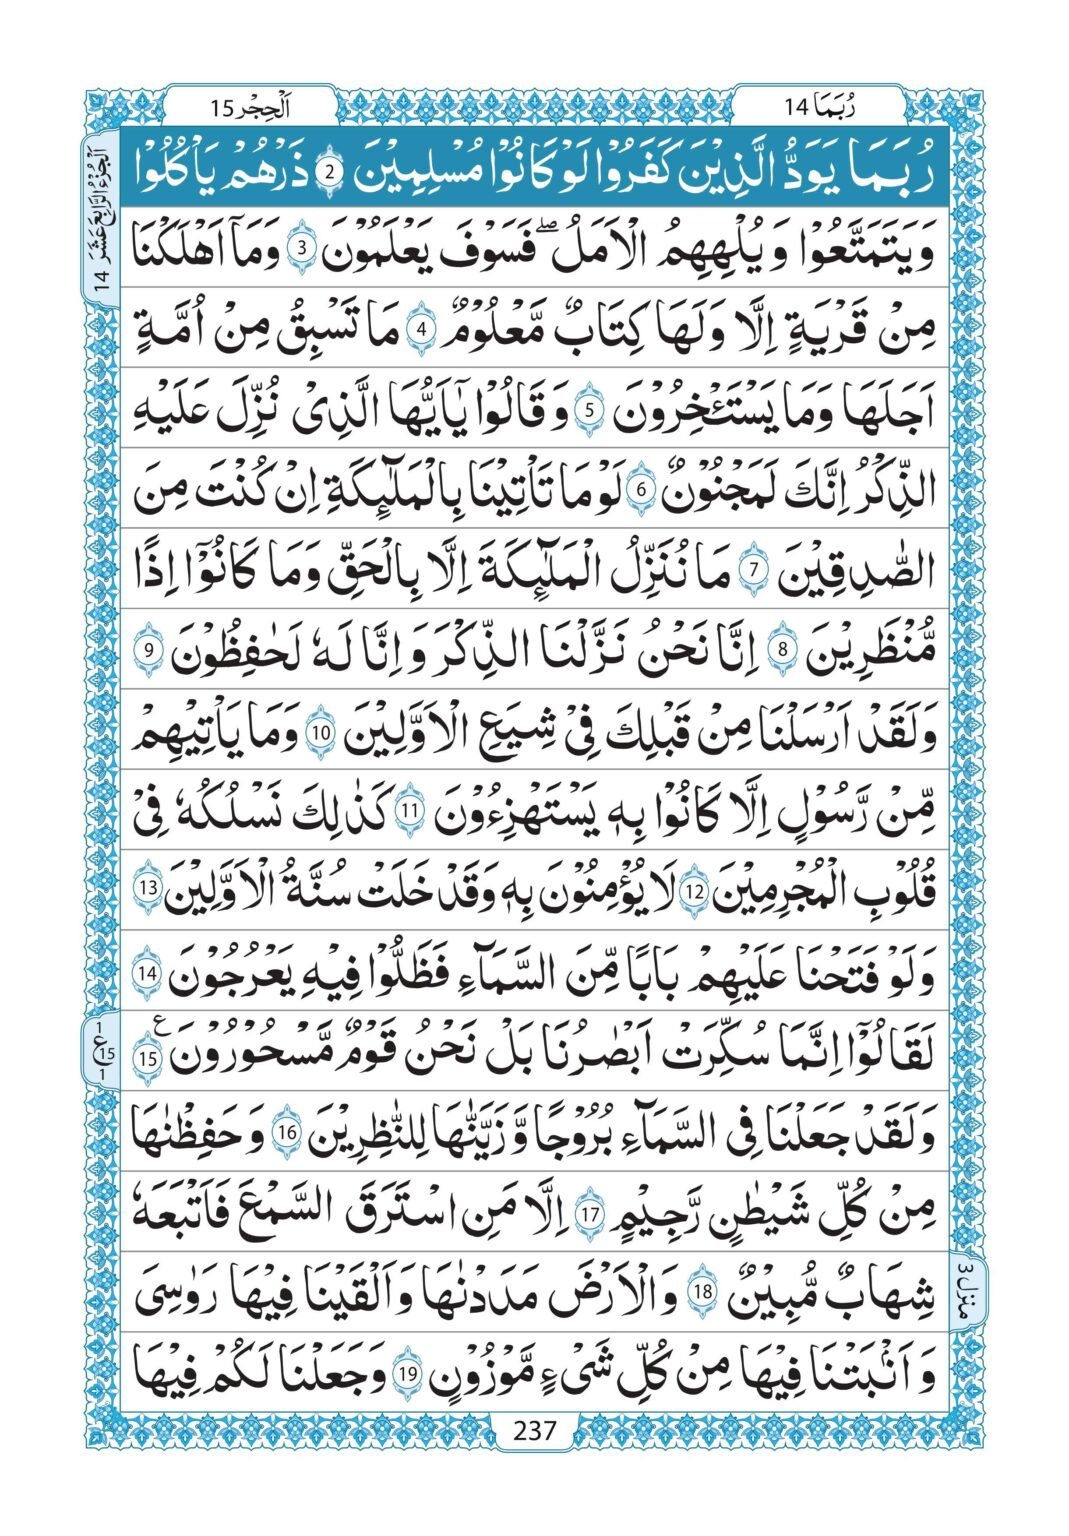 رُبَمَا 14
اَلْحِجْر 15
اَلْجُزْءُ الرَّابِعَ عَشَرَ 14
رُبَمَا يَوَدُّ الَّذِيْنَ كَفَرُوْا لَوْ كَانُوْا مُسْلِمِيْنَ 2 ذَرْهُمْ يَاْكُلُوْا
وَيَتَمَتَّعُوْا وَيُلْهِهِمُ الْاَمَلُ ۖ فَسَوْفَ يَعْلَمُوْنَ 3 وَمَآ اَهْلَكْنَا
مِنْ قَرْيَةٍ اِلَّا وَلَهَا كِتَابٌ مَّعْلُوْمٌ 4 مَا تَسْبِقُ مِنْ اُمَّةٍ
اَجَلَهَا وَمَا يَسْتَـْٔخِرُوْنَ 5 وَقَالُوْا يٰٓاَيُّهَا الَّذِىْ نُزِّلَ عَلَيْهِ
الذِّكْرُ اِنَّكَ لَمَجْنُوْنٌ 6 لَوْ مَا تَاْتِيْنَا بِالْمَلٰٓئِكَةِ اِنْ كُنْتَ مِنَ
الصّٰدِقِيْنَ 7 مَا نُنَزِّلُ الْمَلٰٓئِكَةَ اِلَّا بِالْحَقِّ وَمَا كَانُوْٓا اِذًا
مُّنْظَرِيْنَ 8 اِنَّا نَحْنُ نَزَّلْنَا الذِّكْرَ وَاِنَّا لَهٗ لَحٰفِظُوْنَ 9
وَلَقَدْ اَرْسَلْنَا مِنْ قَبْلِكَ فِىْ شِيَعِ الْاَوَّلِيْنَ 10 وَمَا يَاْتِيْهِمْ
مِّنْ رَّسُوْلٍ اِلَّا كَانُوْا بِهٖ يَسْتَهْزِءُوْنَ 11 كَذٰلِكَ نَسْلُكُهٗ فِىْ
قُلُوْبِ الْمُجْرِمِيْنَ 12 لَا يُؤْمِنُوْنَ بِهٖ وَقَدْ خَلَتْ سُنَّةُ الْاَوَّلِيْنَ 13
وَلَوْ فَتَحْنَا عَلَيْهِمْ بَابًا مِّنَ السَّمَآءِ فَظَلُّوْا فِيْهِ يَعْرُجُوْنَ 14
لَقَالُوْٓا اِنَّمَا سُكِّرَتْ اَبْصٰرُنَا بَلْ نَحْنُ قَوْمٌ مَّسْحُوْرُوْنَ 15 ع
1
ع 15
1
وَلَقَدْ جَعَلْنَا فِى السَّمَآءِ بُرُوْجًا وَّزَيَّنّٰهَا لِلنّٰظِرِيْنَ 16 وَحَفِظْنٰهَا
مِنْ كُلِّ شَيْطٰنٍ رَّجِيْمٍ 17 اِلَّا مَنِ اسْتَرَقَ السَّمْعَ فَاَتْبَعَهٗ
شِهَابٌ مُّبِيْنٌ 18 وَالْاَرْضَ مَدَدْنٰهَا وَاَلْقَيْنَا فِيْهَا رَوٰسِىَ
منزل 3
وَاَنْۢبَتْنَا فِيْهَا مِنْ كُلِّ شَىْءٍ مَّوْزُوْنٍ 19 وَجَعَلْنَا لَكُمْ فِيْهَا
237